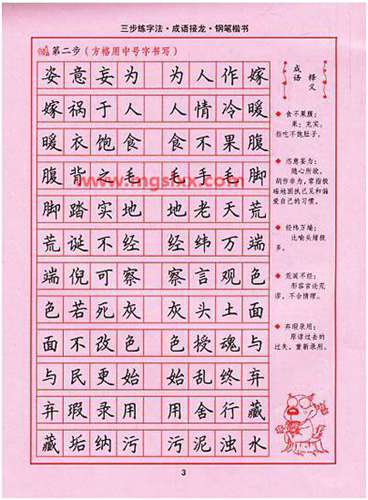 三步练字法·成语接龙·钢笔楷书
第二步(方格用中号字书写)
姿意妄为 为人作嫁
嫁祸于人 人情冷暖
暖衣饱食 食不果腹
腹背之毛 毛手毛脚
脚踏实地 地老天荒
荒诞不经 经纬万端
端倪可察 察言观色
色若死灰 灰头土面
面不改色 色授魂与
与民更始 始乱终弃
弃瑕录用 用舍行藏
藏垢纳污 污泥浊水
www.mgsfxx.com
成语
释义
食不果腹:
果:充实。
指吃不饱肚子。
恣意妄为:
随心所欲,
胡作非为,常指极
端地固执己见和偏
爱自己的习惯。
经纬万端:
比喻头绪很
多。
荒诞不经:
形容言论荒
谬,不合情理。
弃瑕录用:
原谅过去的
过失,重新录用。
3